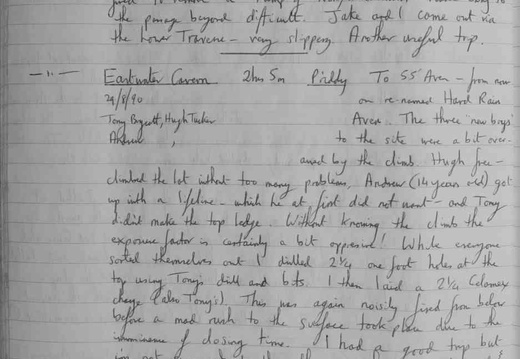 the passage beyond difficult. Jake and I came out via
the Lower Traverse – very slippery. Another useful trip.
Eastwater Cavern 2hrs 5m Priddy To 55' Aven – from now
29/8/90 on re-named Hard Rain
Tony Boycott, Hugh Tucker Aven. The three 'new boys'
Andrew , to the site were a bit over-
awed by the climb. Hugh free-
climbed the lot without too many problems, Andrew (14 years old) got
up with a lifeline – which he at first did not want – and Tony
didn't make the top ledge. Without knowing the climb the
exposure factor is certainly a bit oppressive! While everyone
sorted themselves out I drilled 2 1/4 one foot holes at the
top using Tony's drill and bits. I then laid a 2 1/4 Celamex
charge (also Tony's). This was again noisily fired from below
before a mad rush to the surface took place due to the
imminence of closing time. I had a good trip but